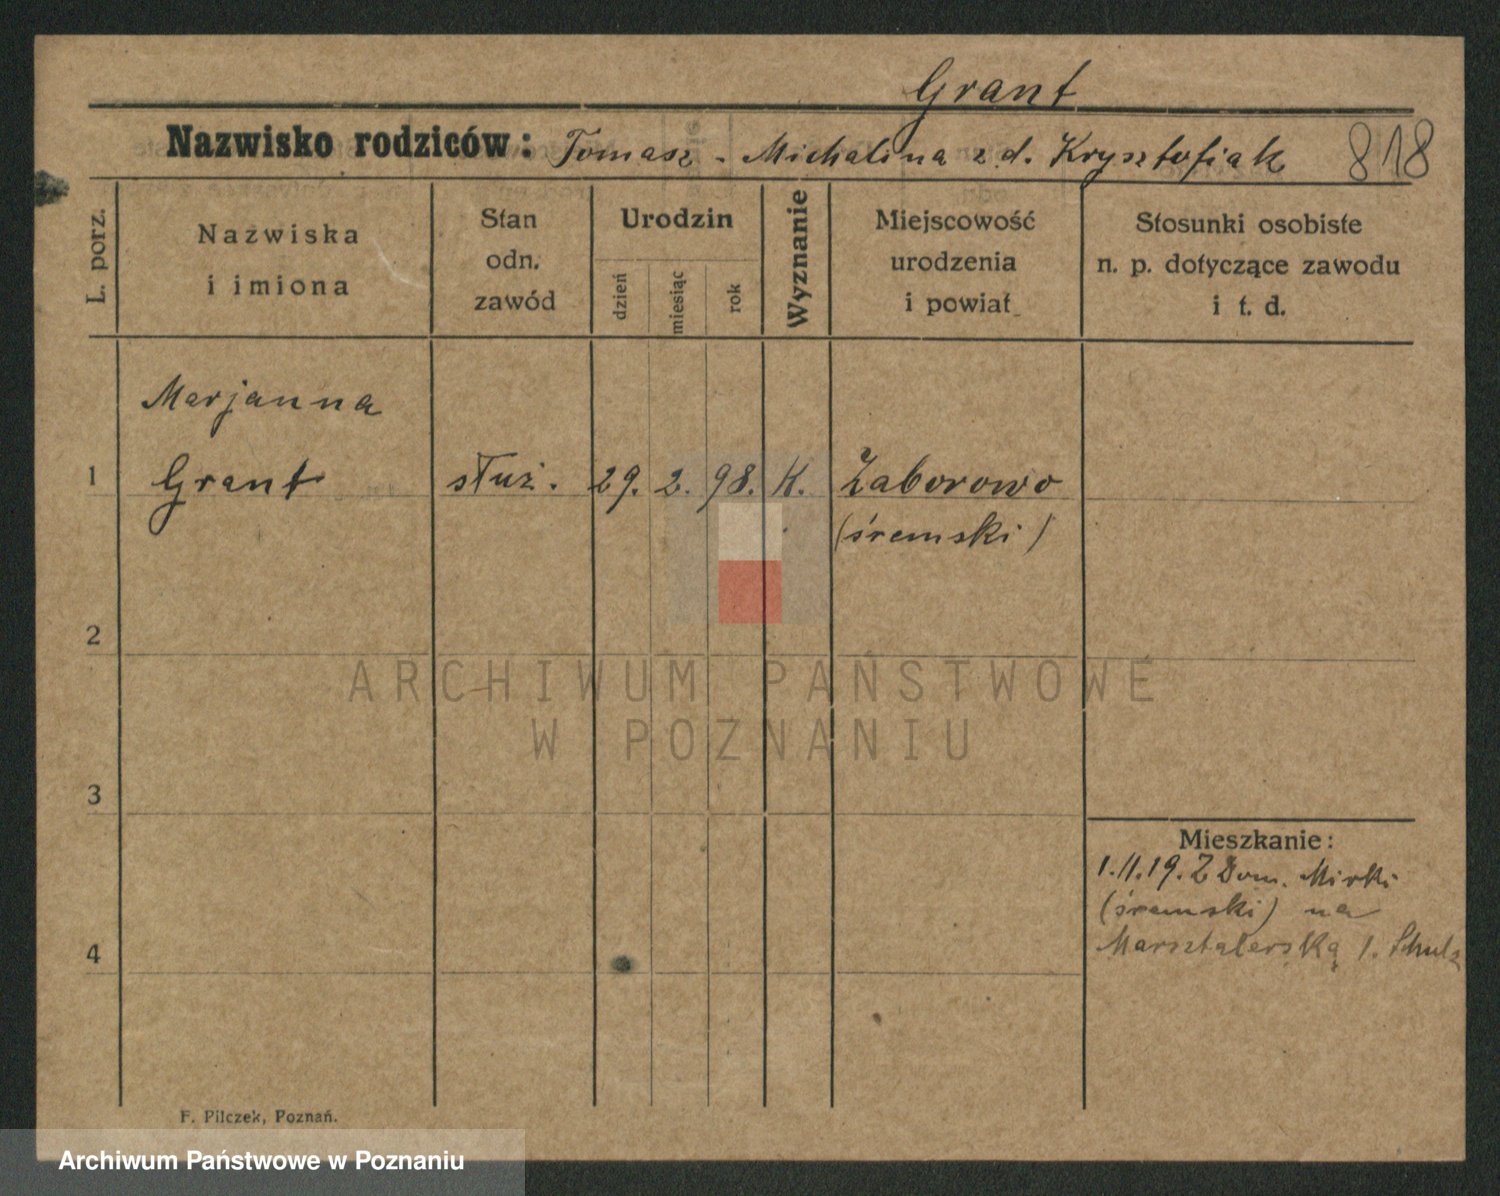 Grant
Nazwisko rodziców: Tomasz - Michalina z d. Krysztofiak 818
L. porz.
Nazwiska
i imiona
Stan
odn.
zawód
Urodzin
dzień
miesiąc
rok
Wyznanie
Miejscowość
urodzenia
i powiat
Stosunki osobiste
n. p. dotyczące zawodu
i t. d.
Marjanna
1 Grant służ. 29. 2. 98. K. Zaborowo
(śremski)
2
ARCHIWUM PAŃSTWOWE
W POZNANIU
3
Mieszkanie:
1.11.19. Z Dom. Mirki
(śremski) na
4 Marsztalerską 1. Schulz
F. Pilczek, Poznań.
Archiwum Państwowe w Poznaniu